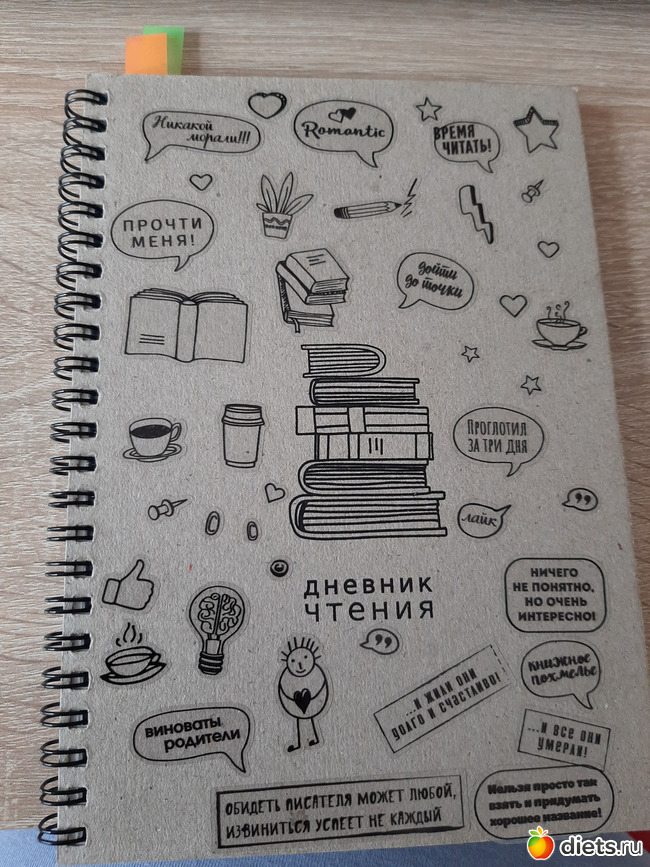 Никакой
морали!!!
Romantic
ВРЕМЯ
ЧИТАТЬ!
ПРОЧТИ
МЕНЯ!
дойти
до точки
ПРОГЛОТИЛ
ЗА ТРИ ДНЯ
лайк
дневник
чтения
НИЧЕГО
НЕ ПОНЯТНО,
НО ОЧЕНЬ
ИНТЕРЕСНО!
КНИЖНОЕ
ПОХМЕЛЬЕ
...И ЖИЛИ ОНИ
ДОЛГО И СЧАСТЛИВО!
ВИНОВАТЫ
РОДИТЕЛИ
...И ВСЕ ОНИ
УМЕРЛИ!
ОБИДЕТЬ ПИСАТЕЛЯ МОЖЕТ ЛЮБОЙ,
ИЗВИНИТЬСЯ УСПЕЕТ НЕ КАЖДЫЙ
Нельзя просто так
взять и придумать
хорошее название!
diets.ru